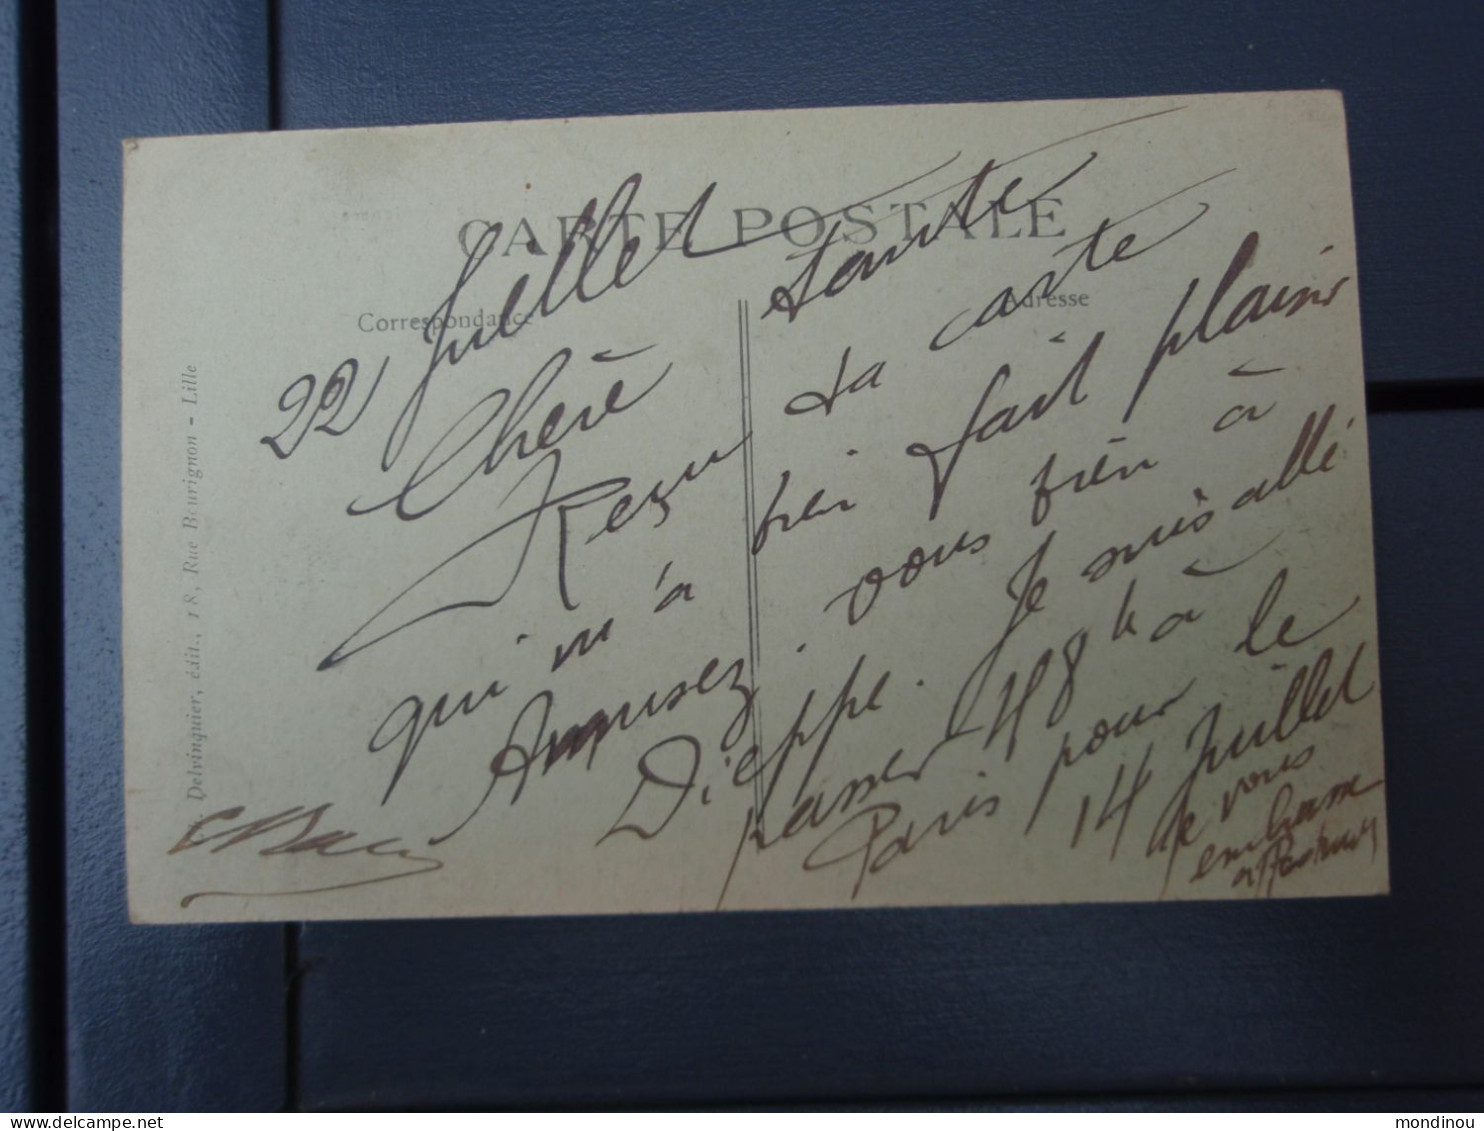 CARTE POSTALE
Correspondance
Adresse
Delvinquier, édit., 18, Rue Bourignon - Lille
22 Juillet
Chère tante
Reçu ta carte
qui m'a bien fait plaisir
Amusez vous bien à
Dieppe. Je suis allé
passer 48 h à
Paris pour le
14 Juillet
Je vous
embrasse
mondinou